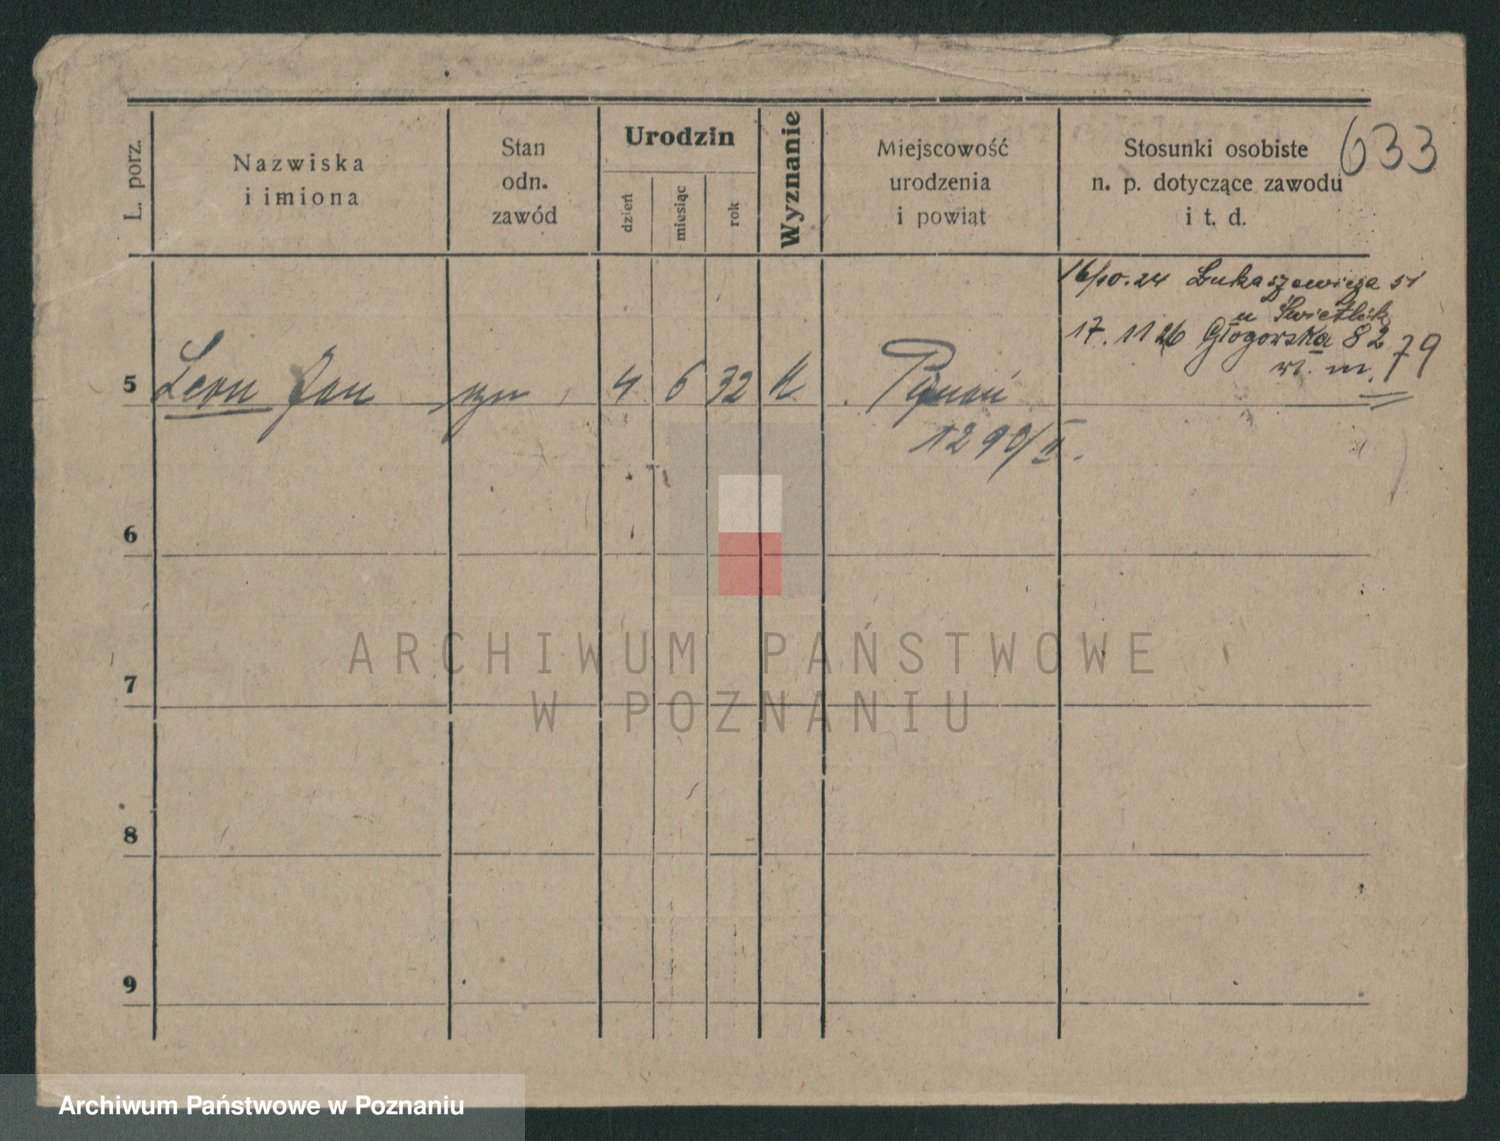 633
L. porz.
Nazwiska
i imiona
Stan
odn.
zawód
Urodzin
dzień
miesiąc
rok
Wyznanie
Miejscowość
urodzenia
i powiat
Stosunki osobiste
n. p. dotyczące zawodu
i t. d.
16/10.24 Łukaszewicza 51
u Świetlik
17.11 26 Głogorska 82
79
5 Leon Jan syn 4 6 32 K Poznań
1290/II.
6
7
8
9
ARCHIWUM PAŃSTWOWE
W POZNANIU
Archiwum Państwowe w Poznaniu